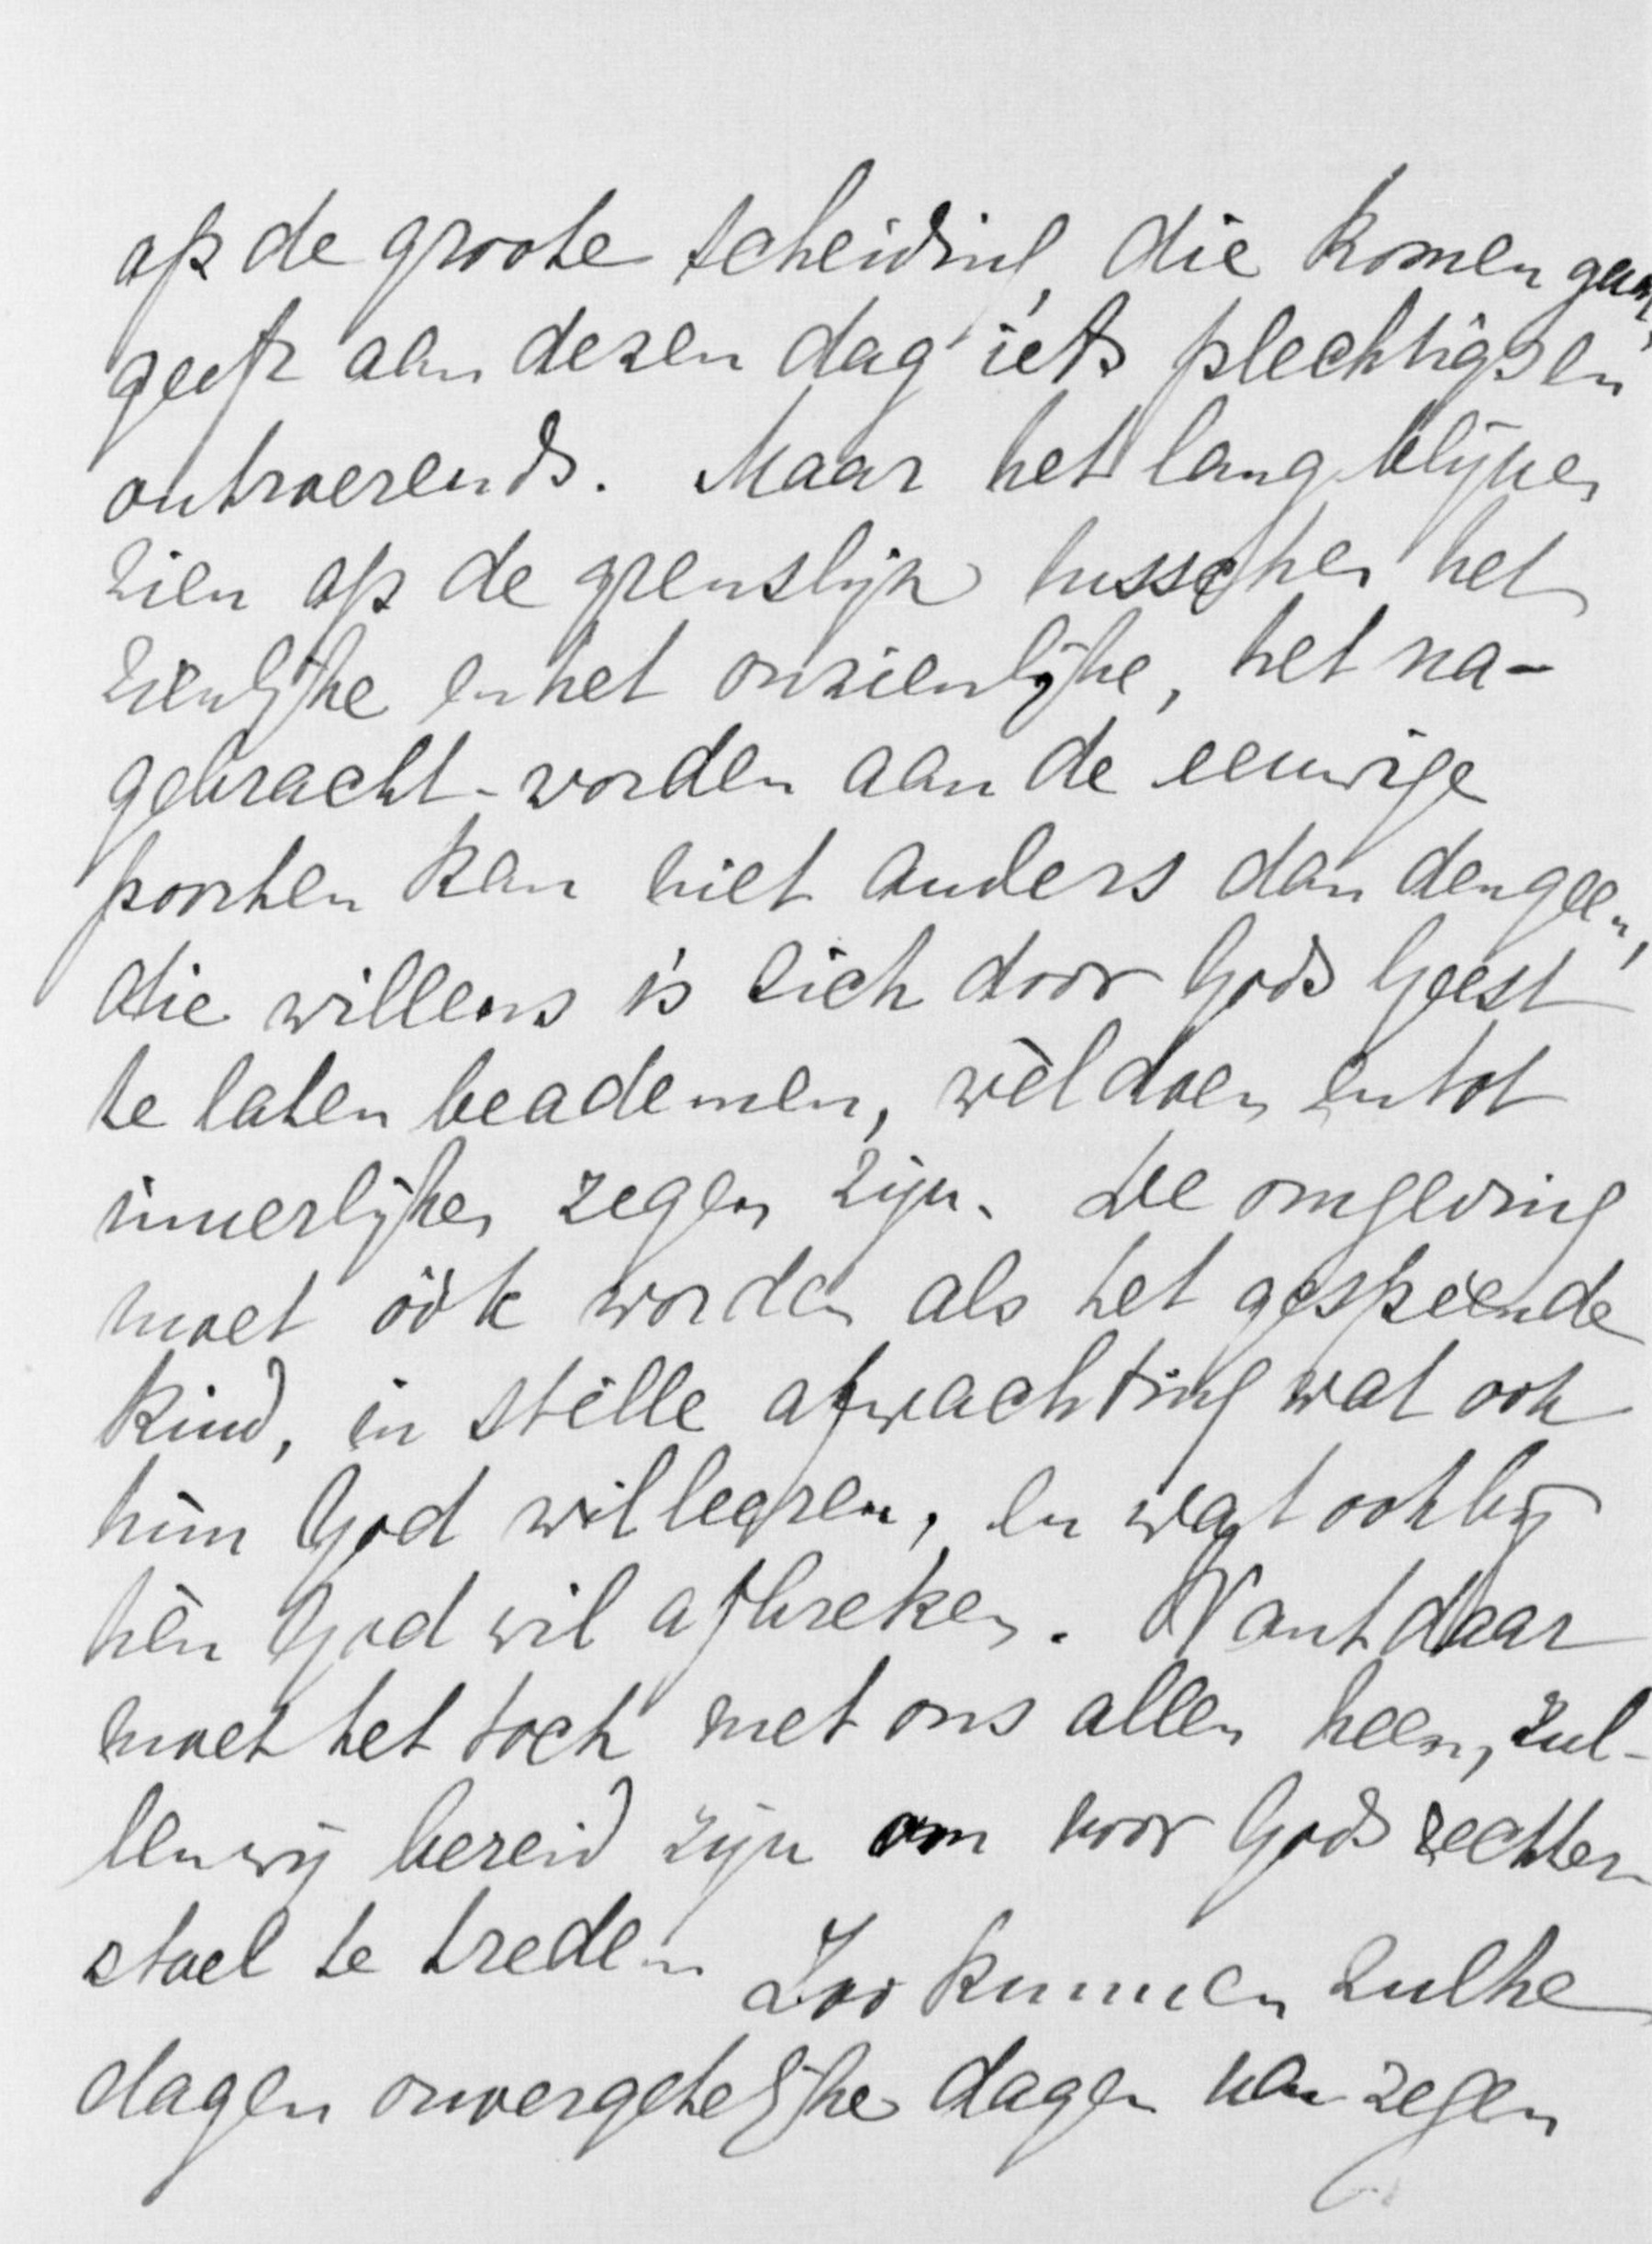 op de groote scheiding, die komen gaat,
geeft aan dezen dag iets plechtigs en
ontroerends. Maar het lang blijven
zien op de grenslijn tusschen het
zienlijke en het onzienlijke, het na-
gebracht-worden aan de eeuwige
poorten kan niet anders dan dengeen,
die willens is zich door Gods Geest
te laten beademen, wèl doen en tot
innerlijken zegen zijn. De omgeving
moet óók worden als het gespeende
kind, in stille afwachting wat ook
hùn God wil leeren, en wat ook bij
hèn God wil afbreken. Want daar
moet het toch met ons allen heen, zul-
len wij bereid zijn om voor Gods rechter-
stoel te treden. Zoo kunnen zulke
dagen onvergetelijke dagen van zegen